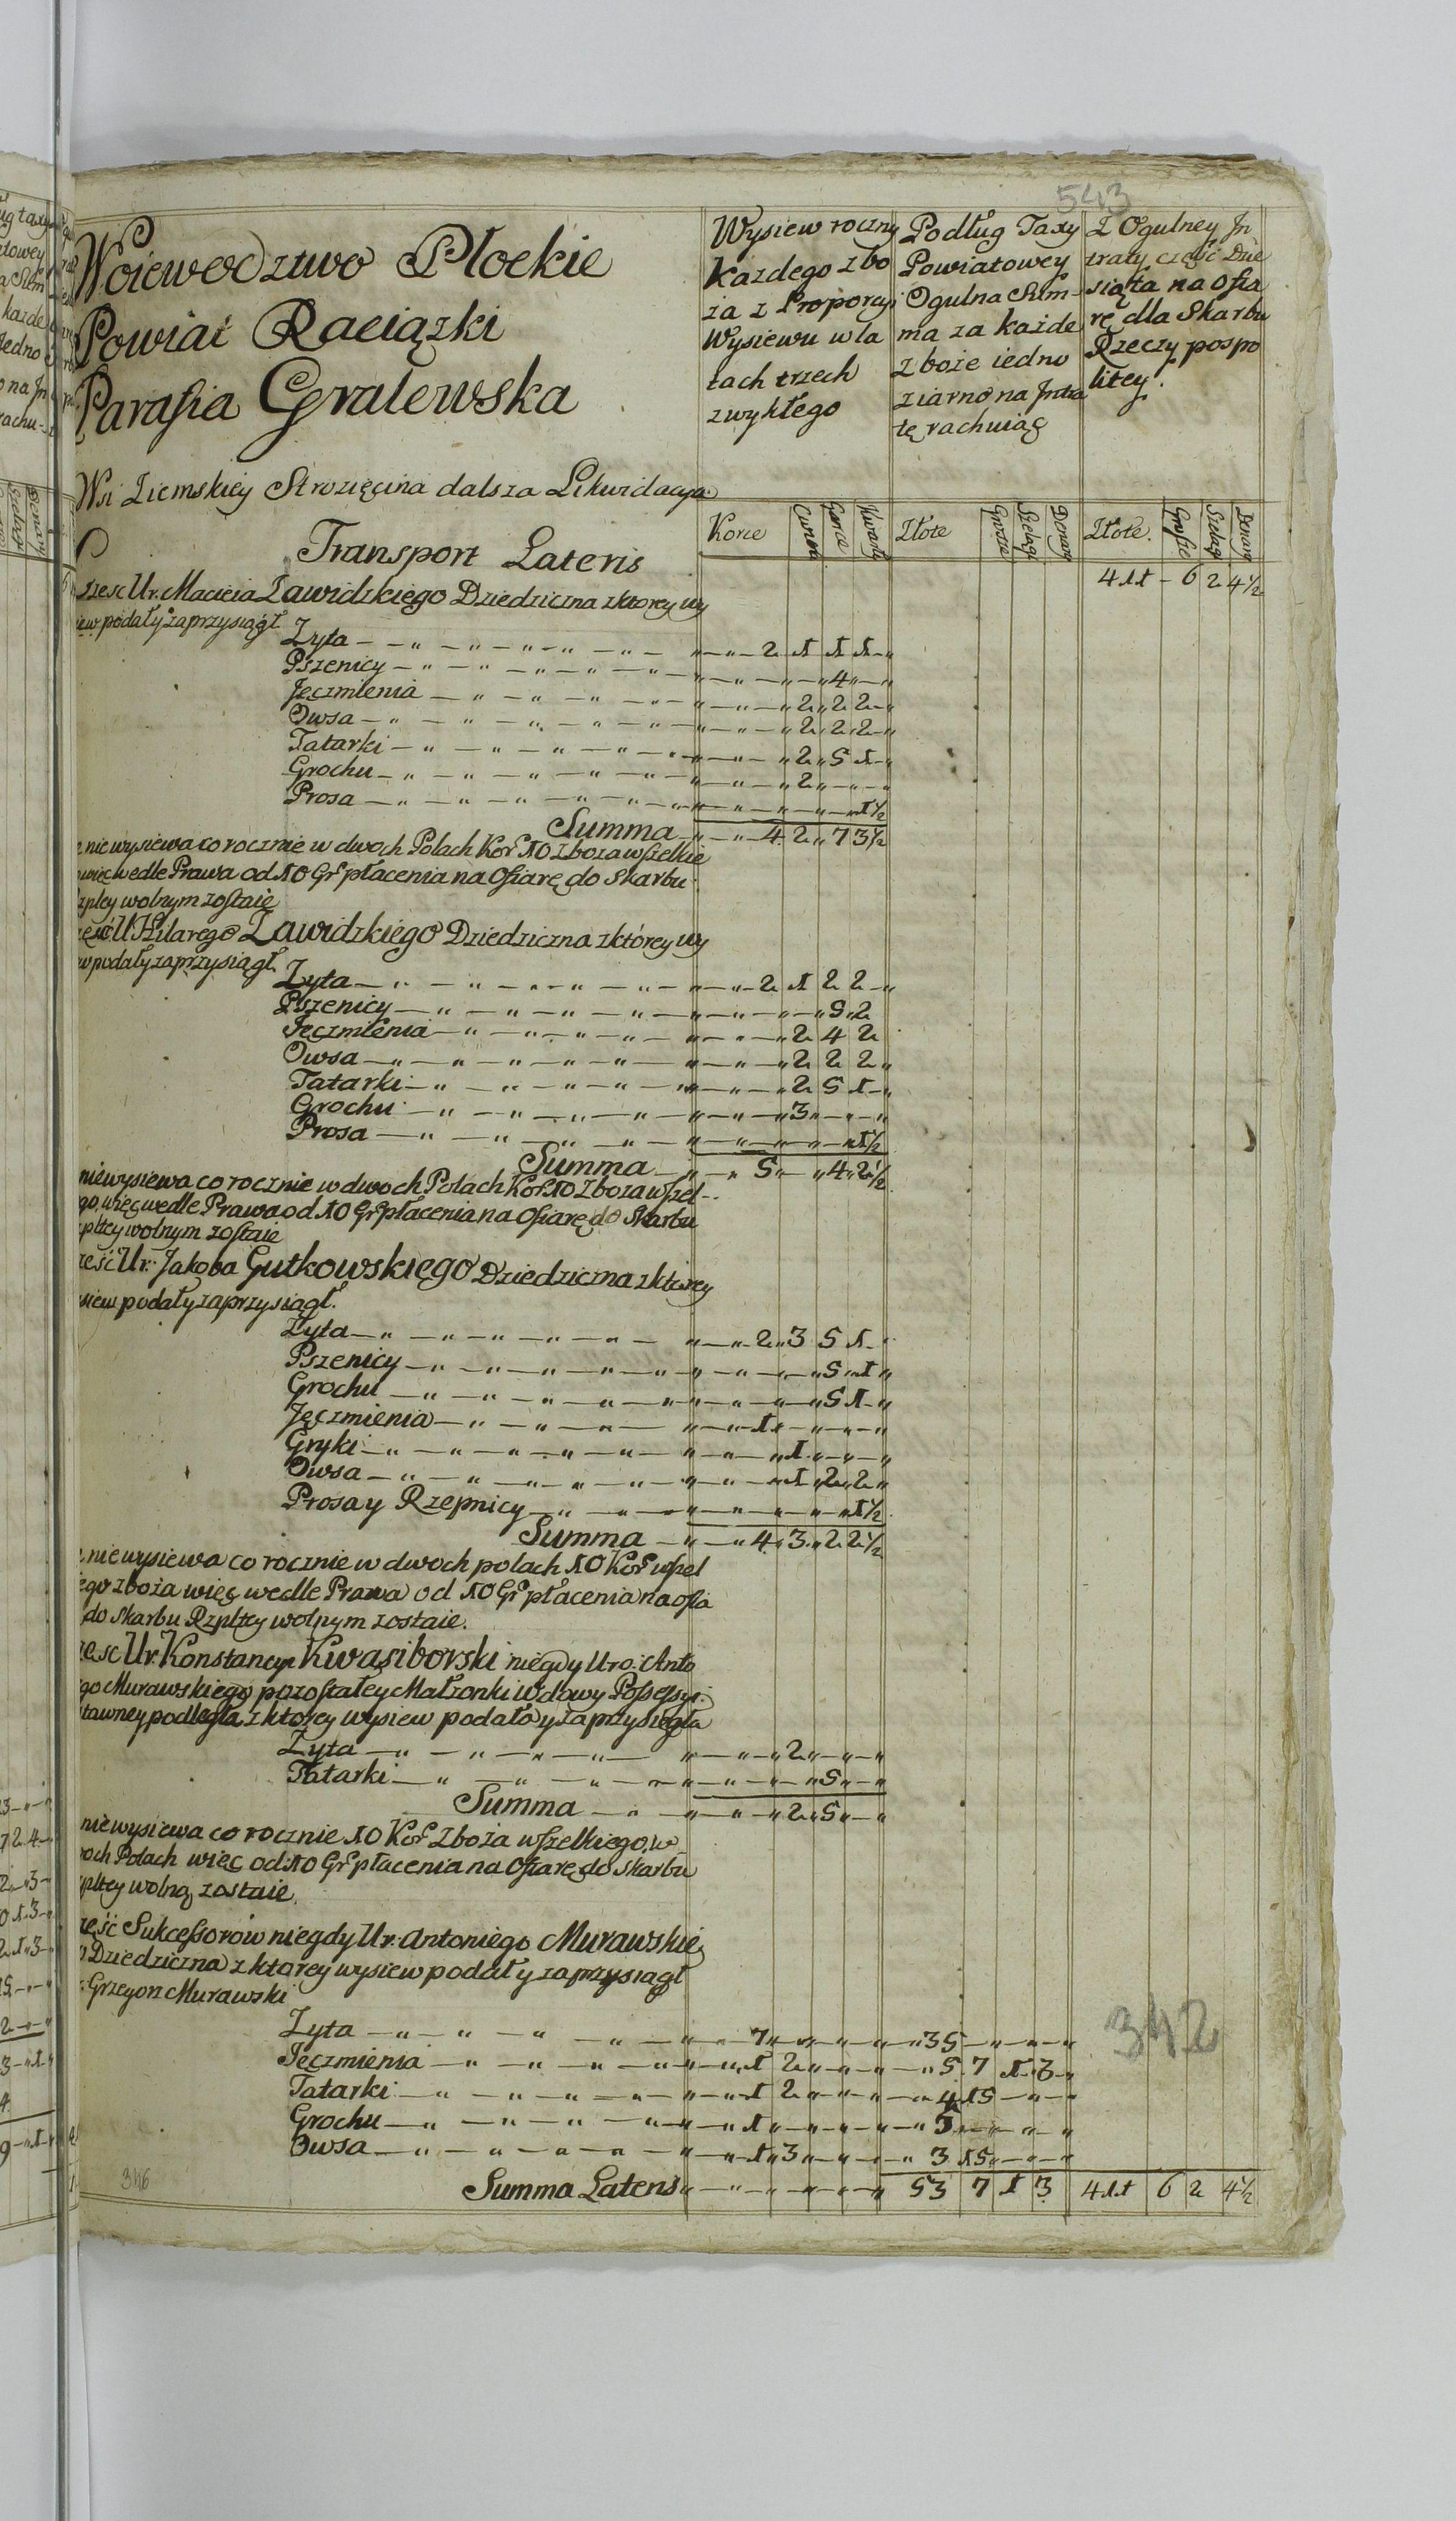 543
Woiewodztwo Płockie
Powiat Raciązki
Parafia Gralewska
Wsi Ziemskiey Strozięcina dalsza Likwidacya.
Wysiew roczny
Kazdego zbo
za z Proporcyi
Wysiewu w la
tach trzech
zwykłego
Podług Taxy
Powiatowey
Ogulna Sum-
ma za każde
zboże iedno
ziarno na Intra
tę rachuiąc
Z Ogulney In
traty część Dzie
siąta na Ofia
rę dla Skarbu
Rzeczy pospo
litey.
Korce Garce Kwarty Złote Grosze Szelągi Denary Złote. Grosze Szelągi Denary
Transport Lateris 411 - 6 2 4½
Ur. Macieia Zawidzkiego Dziedziczna z ktorey wy
podał y zaprzysiągł
Zyta 2 1 1 1
Pszenicy 4
Jęczmienia 2 2 2
Owsa 2 2 2
Tatarki 2 5 1
Grochu 2
Prosa 1½
Summa 4 2 7 3½
nie wysiewa co rocznie w dwoch Polach Kor 10 zboza wszelkie
więc wedle Prawa od 10 Gr płacenia na Ofiarę do Skarbu
wolnym zostaie
U Hilarego Zawidzkiego Dziedziczna z którey wy
podał y zaprzysiągł
Zyta 2 1 2 2
Pszenicy 5 2
Jęczmienia 2 4 2
Owsa 2 2 2
Tatarki 2 5 1
Grochu 3
Prosa 1½
Summa 5 4 2½
nie wysiewa co rocznie w dwoch Polach Kor 10 Zboza wszel-
go, więc wedle Prawa od 10 Gr płacenia na Ofiarę do Skarbu
wolnym zostaie
Ur: Jakoba Gutkowskiego Dziedziczna z ktorey
siew podał y zaprzysiągł.
Zyta 2 3 5 1
Pszenicy 5 1
Grochu 5 1
Jęczmienia 1
Gryki 1
Owsa 1 2 2
Prosa y Rzepnicy 1½
Summa 4 3 2 2½
nie wysiewa co rocznie w dwoch polach 10 Kor wszel
iego zboża więc wedle Prawa od 10 Gr płacenia na ofia
do Skarbu Rzpltey wolnym zostaie.
Ur. Konstancyi Kwasiborski niegdy Uro: Anto
go Murawskiego pozostałey Małzonki Wdowy Possessyi
podległa z ktorey wysiew podała y zaprzysięgła
Zyta 2
Tatarki 5
Summa 2 5
nie wysiewa co rocznie 10 Kor Zboża wszelkiego, w
Polach więc od 10 Gr płacenia na Ofiarę do Skarbu
wolną zostaie
Sukcessorow niegdy Ur. Antoniego Murawskie
Dziedziczna z ktorey wysiew podał y zaprzysiągł
Grzegorz Murawski
Zyta 7 35
Jęczmienia 1 2 5 7 1 3
Tatarki 1 2 4 15
Grochu 1 5
Owsa 1 3 3 15
342
346
Summa Lateris 53 7 1 3 411 6 2 4½